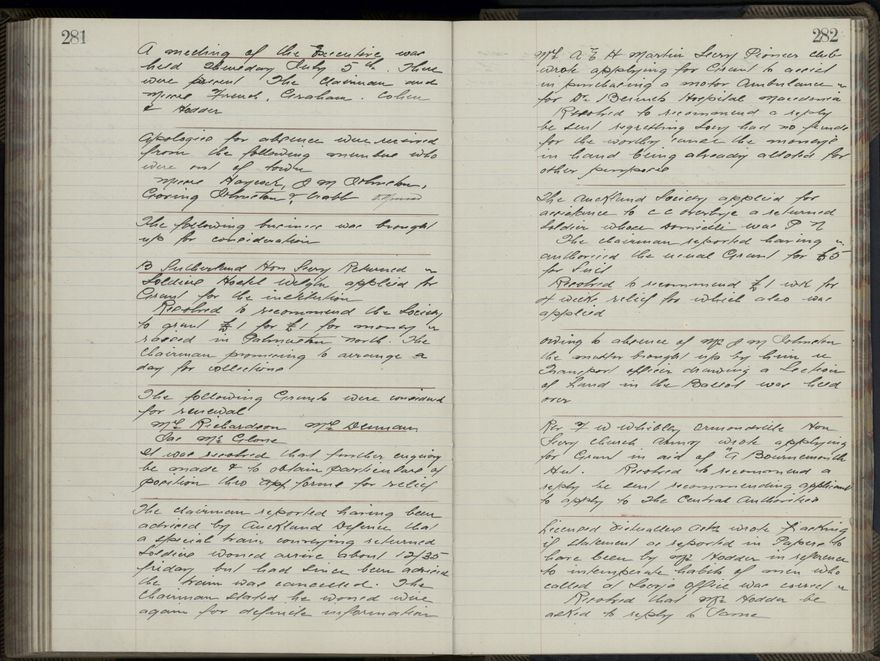 281
A meeting of the Executive was
held Thursday July 5th. There
were present The Chairman and
Messrs French, Graham, Cohen
& Hodder
Apologies for absence were received
from the following members who
were out of town
Messrs Haycock, J M Johnston,
Goring Johnston & Crabb
The following business was brought
up for consideration
B Sutherland Hon Secry Returned
Soldiers Hostel Welgtn applied for
Grant for the institution
Resolved to recommend the Society
to grant £1 for £1 for money
raised in Palmerston North. The
Chairman promising to arrange a
day for collections
The following Grants were considered
for renewal
Mrs Richardson Mrs Denman
Jas McGlone
It was resolved that further enquiry
be made & to obtain particulars of
position thro app forms for relief
The chairman reported having been
advised by Auckland Defence that
a special train conveying returned
Soldiers would arrive about 12/35
friday but had since been advised
the train was cancelled. The
Chairman stated he would wire
again for definite information
282
Mr A H Martin Secry Pioneer Club
wrote applying for Grant to assist
in purchasing a motor Ambulance
for Dr Bennett Hospital Macedonia
Resolved to recommend a reply
be sent regretting Socy had no funds
for the worthy cause the moneys
in hand being already alloted for
other purposes
The Auckland Society applied for
assistance to C C Overbye a returned
soldier whose domicile was P N
The Chairman reported having
authorised the usual Grant for £5
for Suit
Resolved to recommend £1 wk for
4 weeks relief for which also was
applied
Owing to absence of Mr J M Johnston
the matter brought up by him re
Transport officer drawing a Section
of Land in the Ballot was held
over
Rev F W Whibley Ormondville Hon
Secry Church Army wrote applying
for Grant in aid of "A Bournemouth
Hut. Resolved to recommend a
reply be sent recommending applicant
to apply to The Central Authorities
Licensed Victuallers Assn wrote asking
if statement as reported in Papers to
have been by Mr Hodder in reference
to intemperate habits of men who
called at Socys office was correct
Resolved that Mr Hodder be
asked to reply to Same